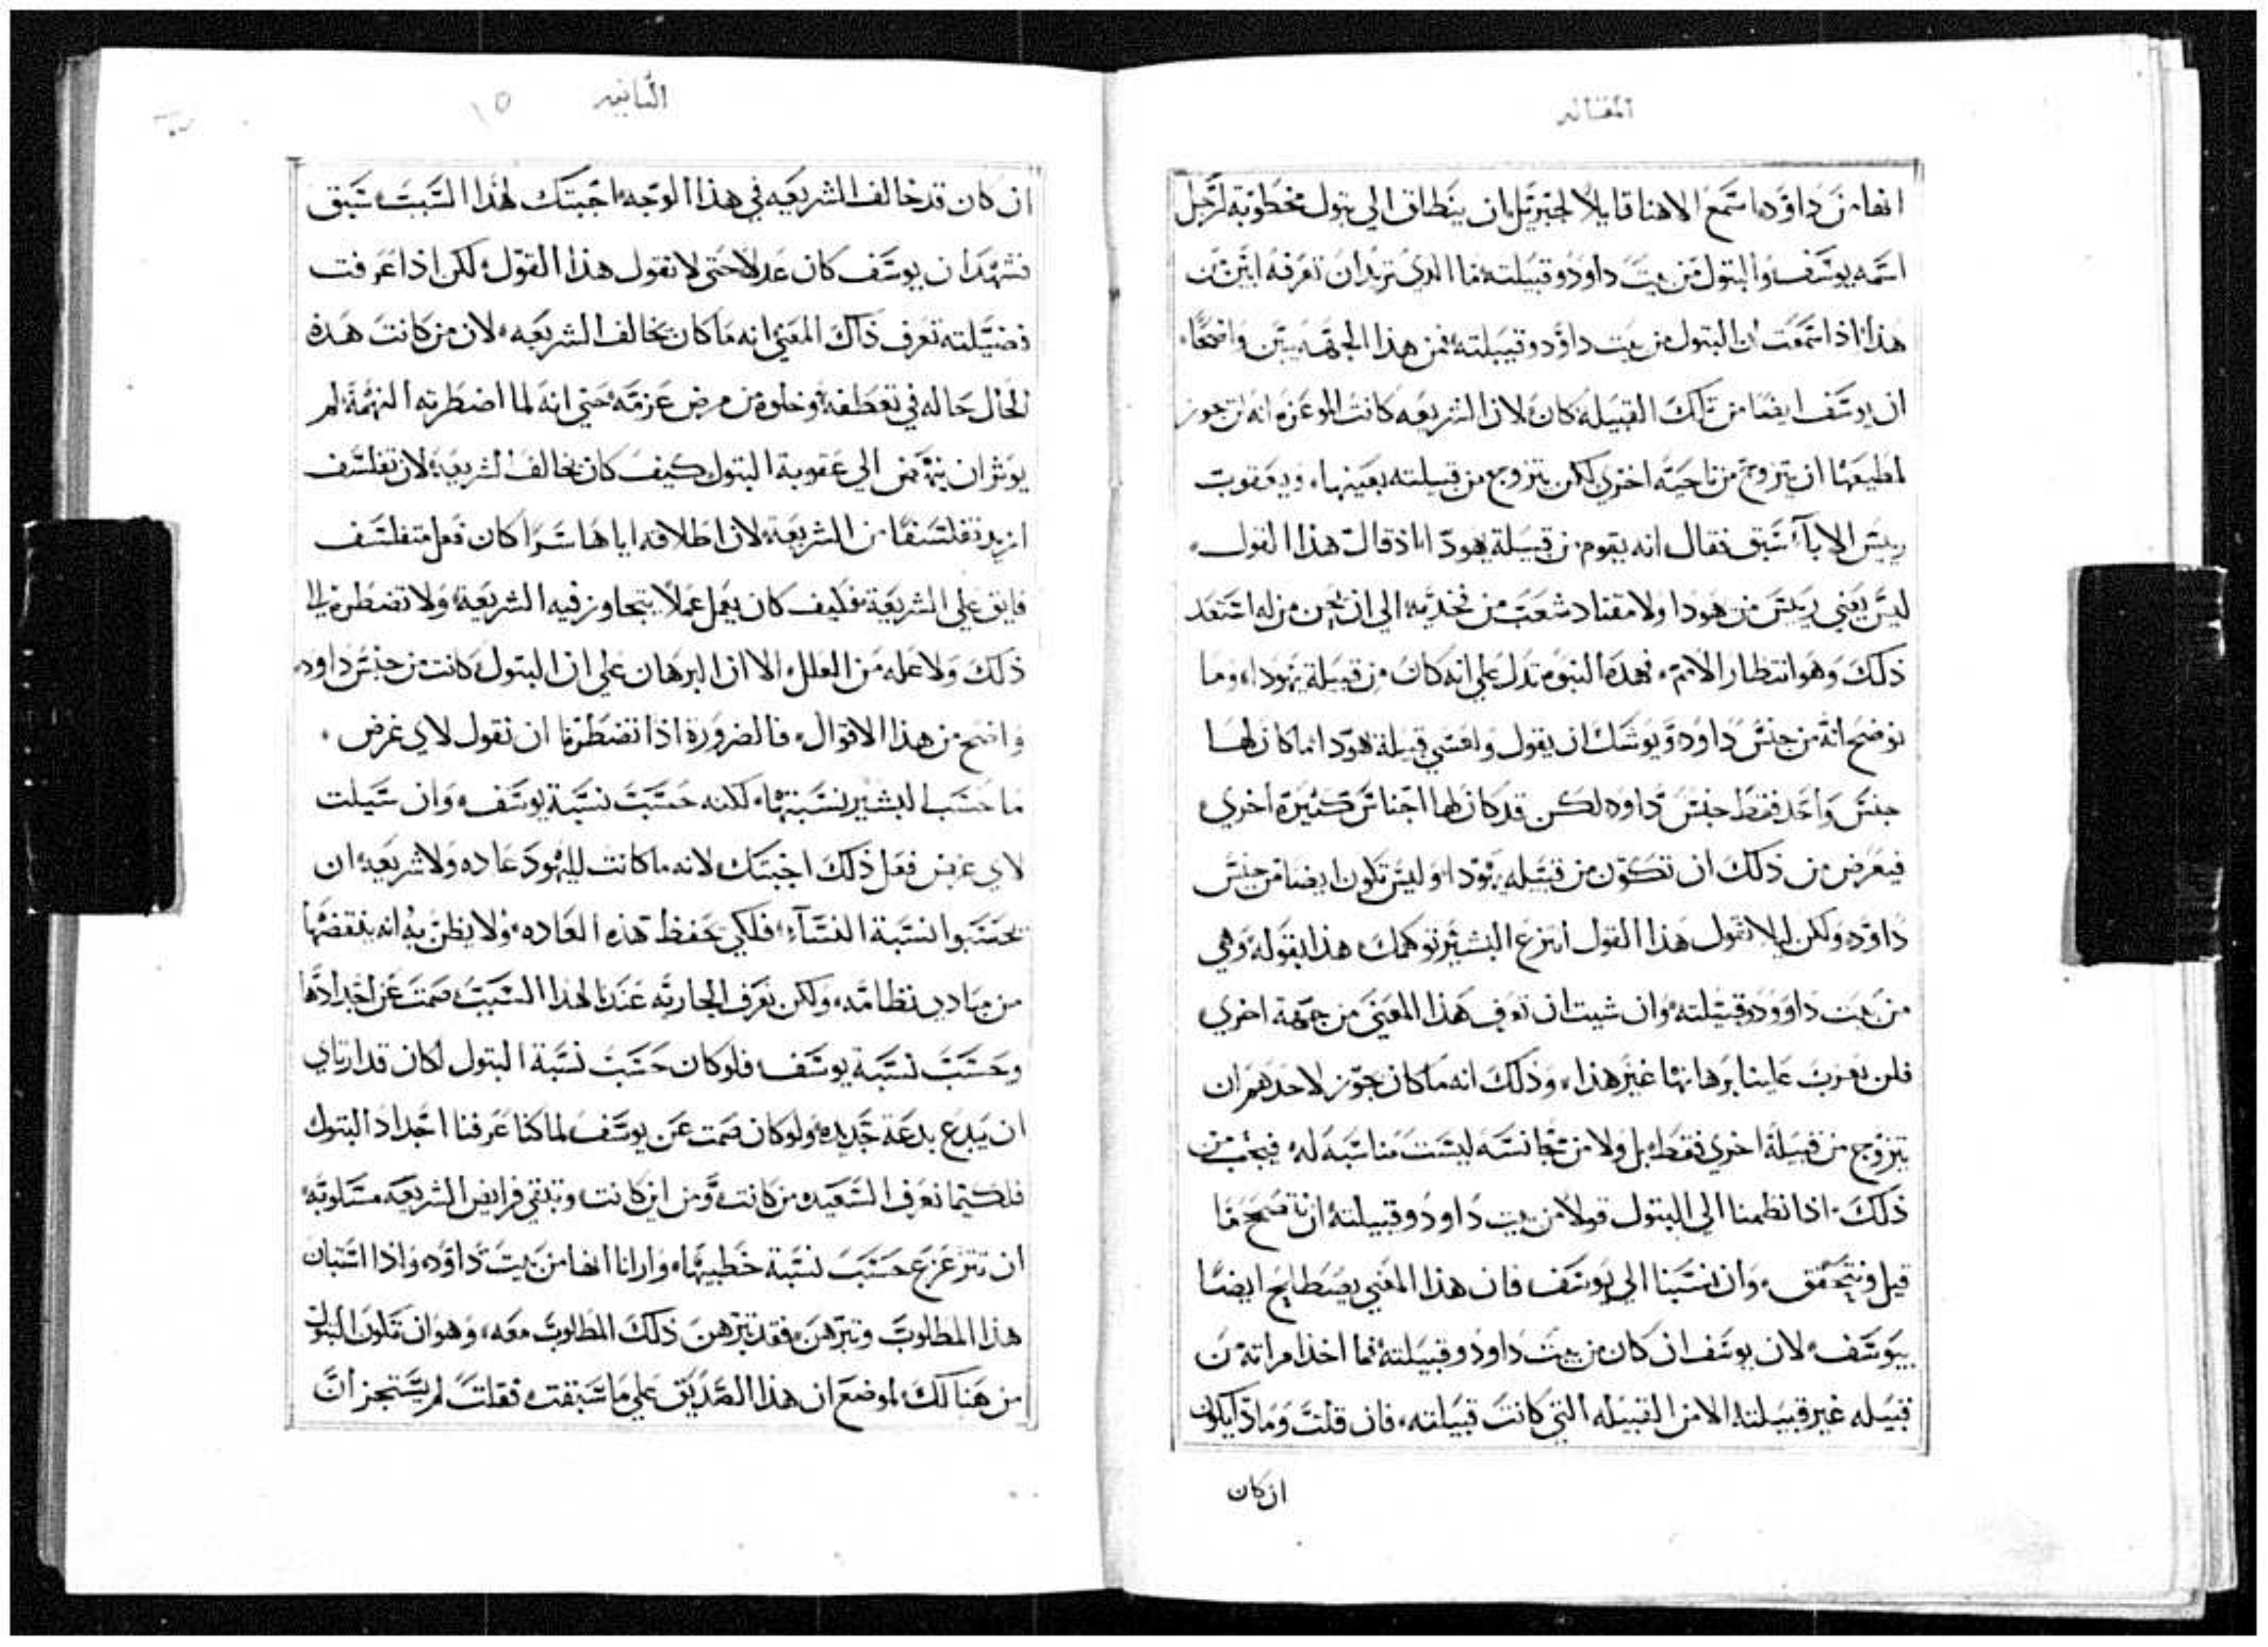 المقاله
انها من داوود اسمع الاهنا قايلا لجبرييل ان ينطلق الي بتول مخطوبة لرجل
اسمه يوسف والبتول من بيت داوود وقبيلته فما الذي تريد ان تعرفه ابين من
هذا اذا سمعت ان البتول من بيت داوود وقبيلته فمن هذا الجهه يبين واضحا
ان يوسف ايضا من تلك القبيله كان لان الشريعه كانت الموعزه انه لن يجوز
لمطيعها ان يتزوج من ناحيه اخري لكن يتزوج من قبيلته بعينها ويعقوب
رييس الاباء سبق فقال انه يقوم من قبيلة يهودا اذ قال هذا القول
ليس يفني رييس من هودا ولا مقتاد شعب من فخذيه الي ان يجي من له استعد
ذلك وهو انتظار الامم فهذه النبوه تدل علي انه كان من قبيلة يهودا وما
توضح انه من جنس داوود ويوشك ان يقول ولعسي قبيلة هودا انما كان لها
جنس واحد فقط جنس داوود لكن قد كان لها اجناس كثيره اخري
فيعرض من ذلك ان تكون من قبيله يهودا وليس تكون ايضا من جنس
داوود ولكن ليلا تقول هذا القول انتزع البشير توهمك هذا بقوله وهي
من بيت داوود وقبيلته وان شيت ان تعرف هذا المعني من جهة اخري
فلن يعزب علينا برهانها غير هذا وذلك انه ما كان يجوز لاحدهم ان
يتزوج من قبيلة اخري فقط بل ولا من مجانسه ليست مناسبه له فيجب من
ذلك اذا نظمنا الي البتول قولا من بيت داوود وقبيلته ان يتضح ما
قيل ويتحقق وان نسبنا الي يوسف فان هذا المعني يصطلح ايضا
بيوسف لان يوسف ان كان من بيت داوود وقبيلته فما اخذ امراته من
قبيله غير قبيلته الا من القبيله التي كانت قبيلته فان قلت وماذا يكون
ان كان
الثانيه ١٥
ان كان قد خالف الشريعه في هذا الوجه اجبتك لهذا السبب سبق
فشهد ان يوسف كان عدلا حتي لا نقول هذا القول لكن اذا عرفت
فضيلته تعرف ذاك المعني انه ما كان يخالف الشريعه لان من كانت هذه
الحال حاله في تعطفه وخلوه من مرض عزمه حتي انه لما اضطرته التهمة لم
يوثر ان ينهض الي عقوبة البتول كيف كان يخالف الشريعه لان تفلسف
ازيد تفلسفا من الشريعة لان اطلاقه اياها سرا كان فعل متفلسف
فايق علي الشريعة فكيف كان يعمل عملا يتجاوز فيه الشريعة ولا تضطره الي
ذلك ولا عله من العلل الا ان البرهان علي ان البتول كانت من جنس داوود
واضح من هذا الاقوال فالضرورة اذا تضطرنا ان نقول لاي غرض
ما حسب البشير نسبتها لكنه حسب نسبة يوسف وان سيلت
لاي غرض فعل ذلك اجبتك لانه ما كانت لليهود عاده ولا شريعه ان
يحسبوا نسبة النساء فلكي يحفظ هذه العاده ولا يظن به انه ينقضها
من مبادي نظامه ولكن يعرف الجاريه عندنا لهذا السبب صمت عن اجدادها
وحسب نسبة يوسف فلو كان حسب نسبة البتول لكان قد ارتاي
ان يبدع بدعة جديده ولو كان صمت عن يوسف لما كنا عرفنا اجداد البتول
فلكيما نعرف السعيده من كانت ومن اين كانت وتبقي فرايض الشريعه مسلوبة
ان تتزعزع حسب نسبة خطيبها وارانا انها من بيت داوود واذا استبان
هذا المطلوب وتبرهن فقد تبرهن ذلك المطلوب معه وهو ان تكون البتول
من هنالك لموضع ان هذا الصديق علي ما سبقت فقلت لم يستجز ان